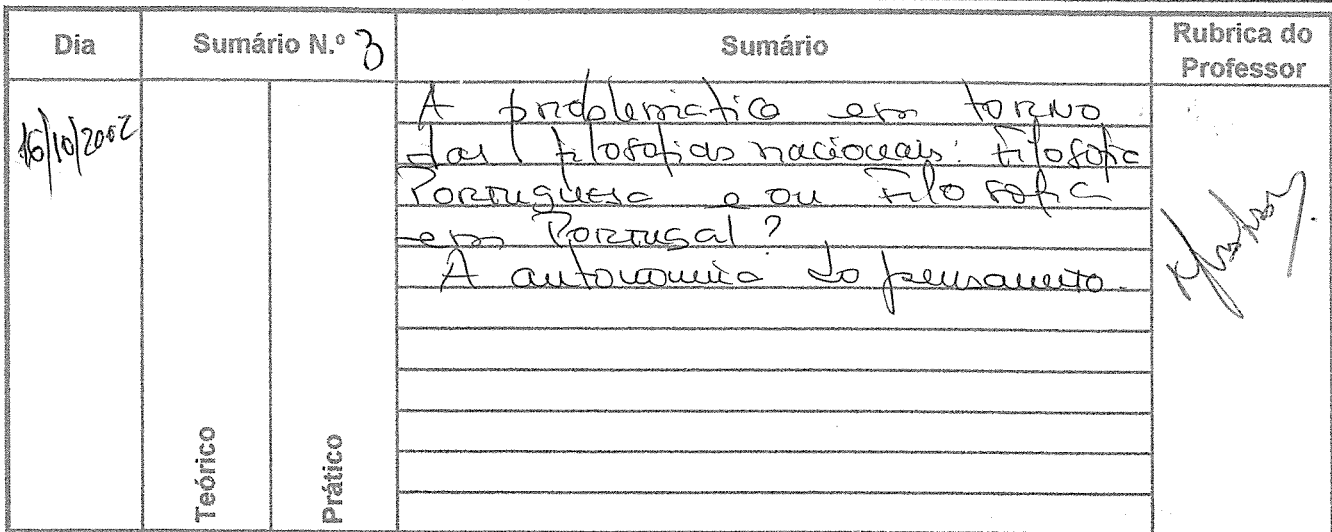 Dia
Sumário N.º 3
Sumário
Rubrica do
Professor
16/10/2002
A problemática em torno
das filosofias nacionais: Filosofia
Portuguesa e ou Filosofia
em Portugal?
A autonomia do pensamento.
Teórico
Prático